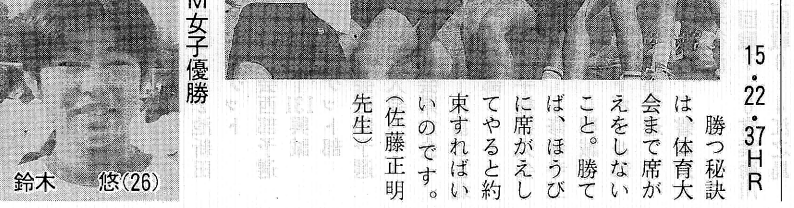 15・22・37HR
勝つ秘訣
は、体育大
会まで席が
えをしない
こと。勝て
ば、ほうび
に席がえし
てやると約
束すればい
いのです。
(佐藤正明
先生)
M女子優勝
鈴木 悠(26)